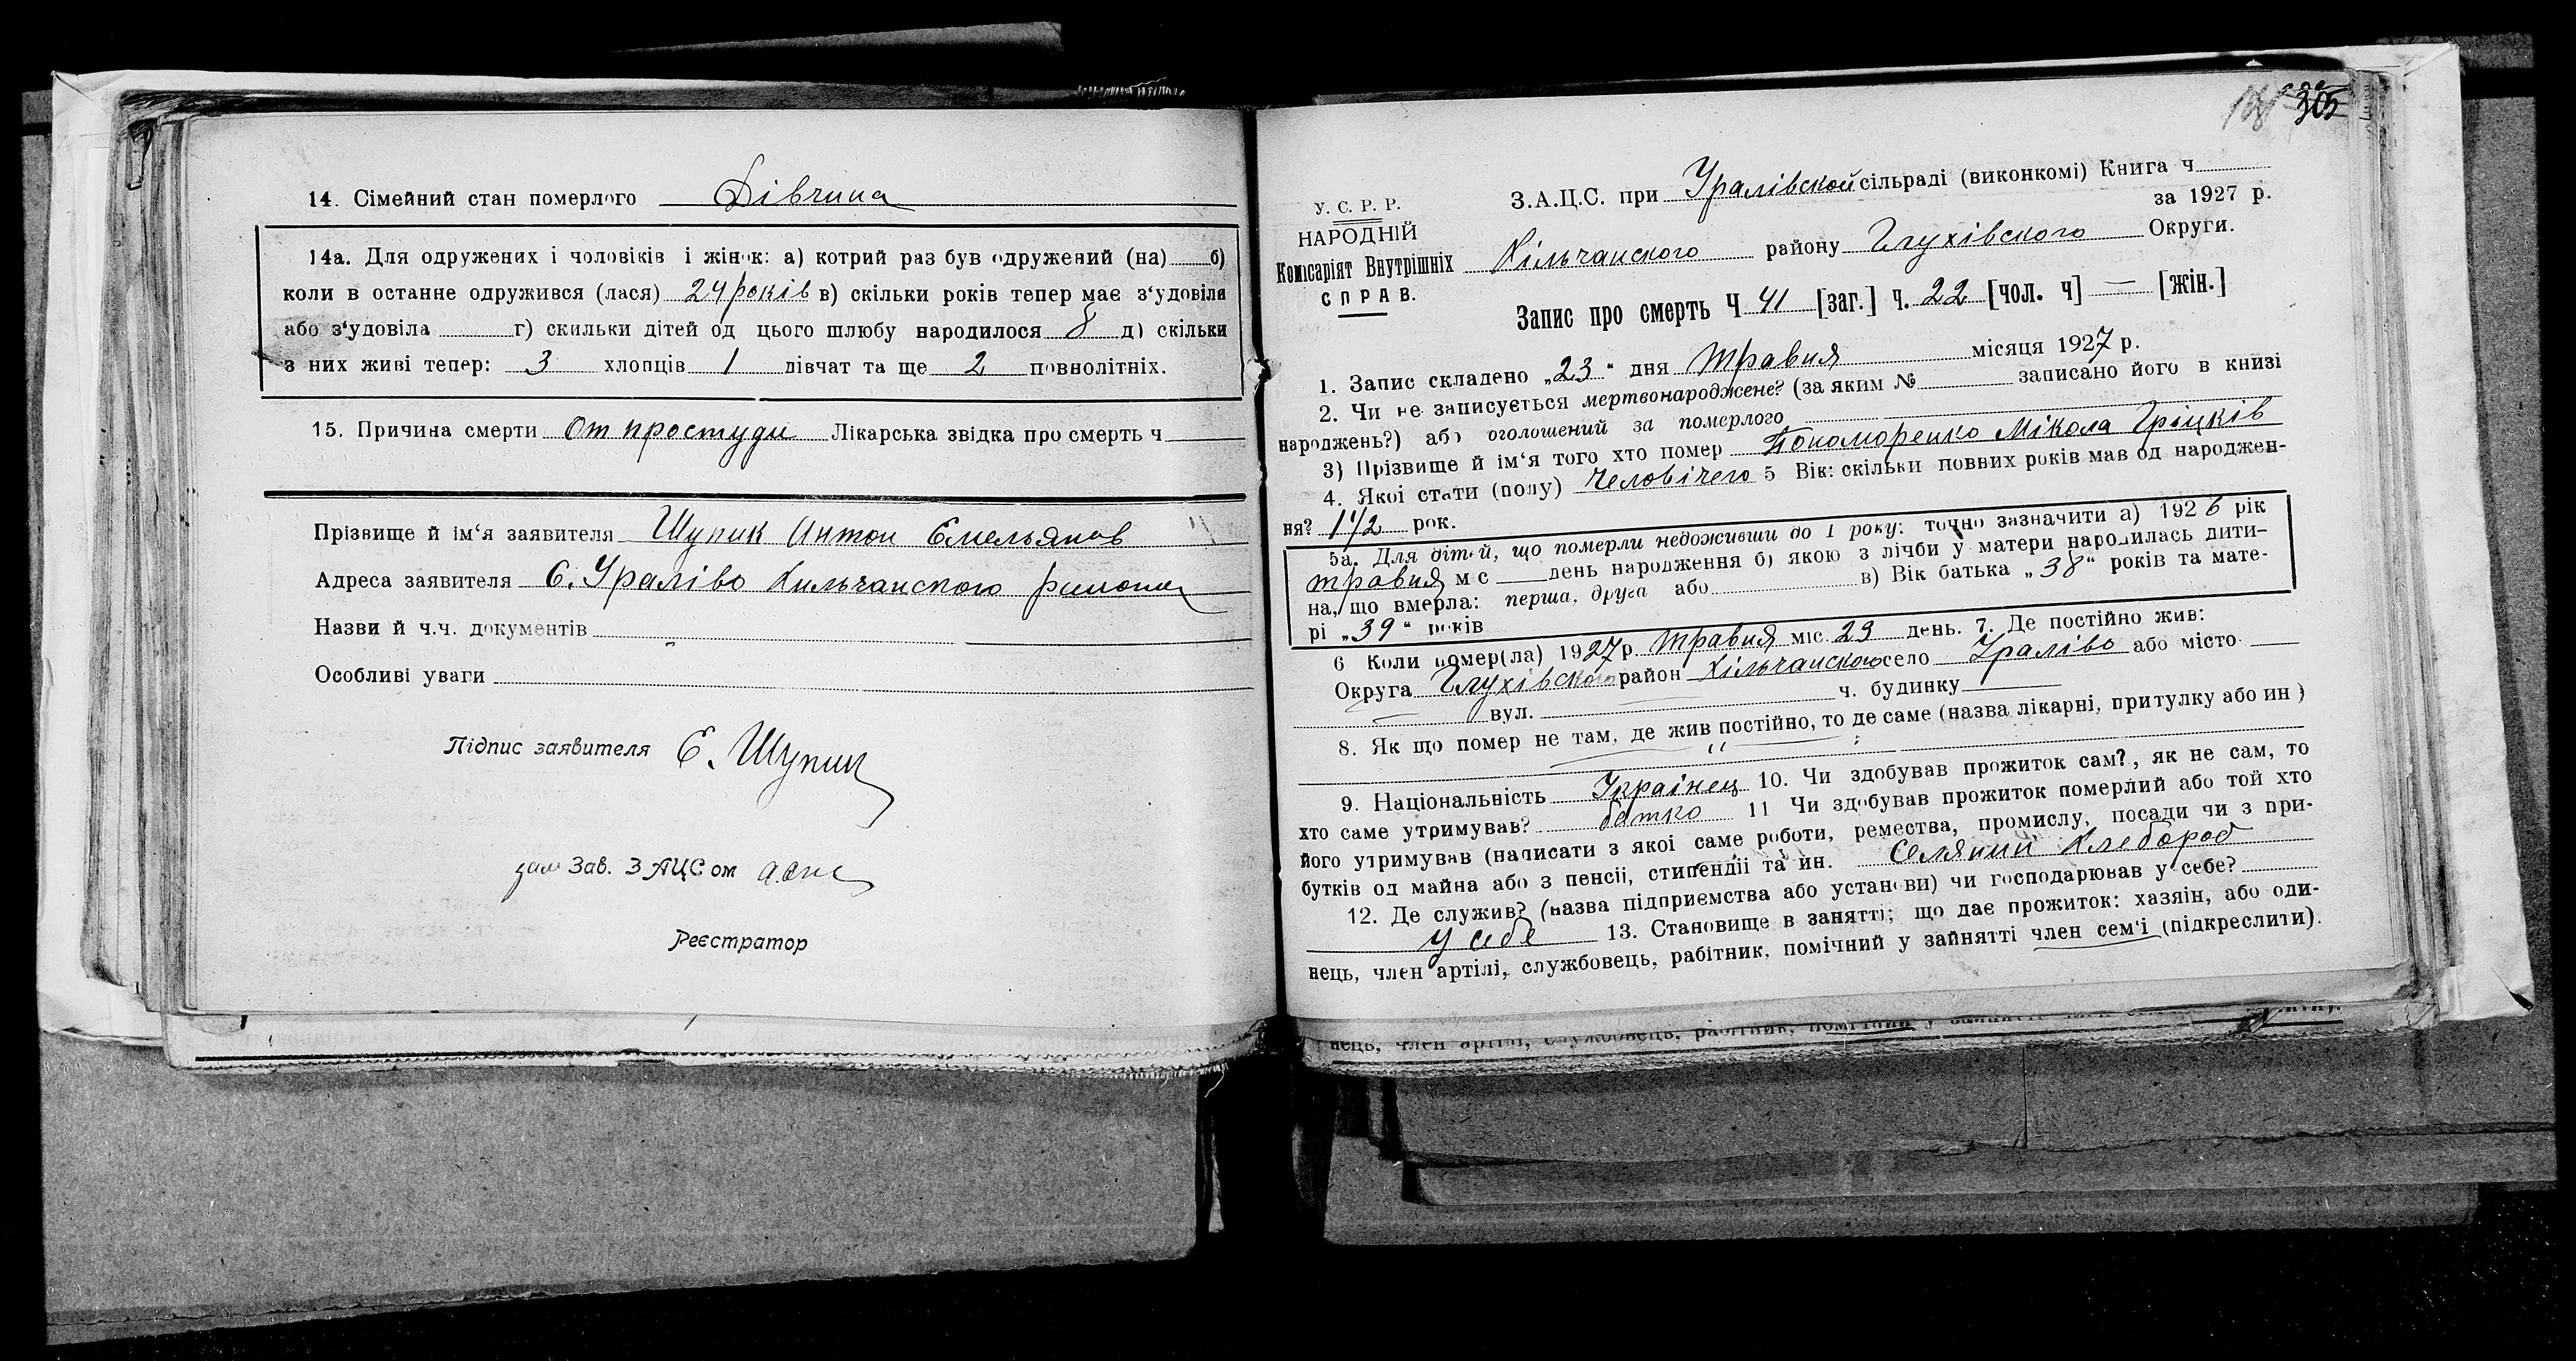 14. Сімейний стан померлого Дівчина
14а. Для одружених і чоловіків і жінок: а) котрий раз був одружений (на) б)
коли в останне одружився (лася) 24 років в) скільки років тепер має з'удовіли
або з'удовіла г) скильки дітей од цього шлюбу народилося 8 д) скільки
з них живі тепер: 3 хлопців 1 дівчат та ще 2 повнолітніх.
15. Причина смерти От простуди Лікарська звідка про смерть ч
Прізвище й ім'я заявителя Шупик Антон Емельянов
Адреса заявителя С. Ураліво Кильчанского района
Назви й ч.ч. документів
Особливі уваги
Підпис заявителя Є. Шупик
зам Зав. ЗАЦСом
Реєстратор
305
У. С. Р. Р.
НАРОДНІЙ
Комісаріят Внутрішніх
СПРАВ.
З.А.Ц.С. при Уралівской сільраді (виконкомі) Книга ч
за 1927 р.
Кільчанского району Глухівского Округи.
Запис про смерть Ч 41 [заг.] ч. 22 [чол. ч] — [жін.]
1. Запис складено „23" дня травня місяця 1927 р.
2. Чи не записується мертвонароджене? (за яким № записано його в книзі
народжень?) або оголошений за померлого
3) Прізвище й ім'я того хто помер Пономоренко Мікола Гріцків
4. Якої стати (полу) Человічего 5 Вік: скільки повних років мав од народжен-
ня? 1 1/2 рок.
5а. Для дітей, що померли недоживши до 1 року: точно зазначити а) 1926 рік
травня м с день народження б) якою з лічби у матери народилась дити-
на, що вмерла: перша, друга або в) Вік батька „38" років та мате-
рі „39" років
6 Коли помер(ла) 1927 р. травня міс. 23 день. 7. Де постійно жив:
Округа Глухівского район Кільчанского село Ураліво або місто
вул. ч. будинку
8. Як що помер не там, де жив постійно, то де саме (назва лікарні, притулку або ин)
9. Національність Українец 10. Чи здобував прожиток сам?, як не сам, то
хто саме утримував? батко 11 Чи здобував прожиток померлий або той хто
його утримував (написати з якої саме роботи, ремества, промислу, посади чи з при-
бутків од майна або з пенсії, стипендії та ин. Селяний Хлебороб
12. Де служив? (назва підприємства або установи) чи господарював у себе?
у себе 13. Становище в занятті; що дає прожиток: хазяін, або оди-
нець, член артілі, службовець, рабітник, помічний у зайнятті член сем'ї (підкреслити).
нець, член артілі, службовець, рабітник, помічний у